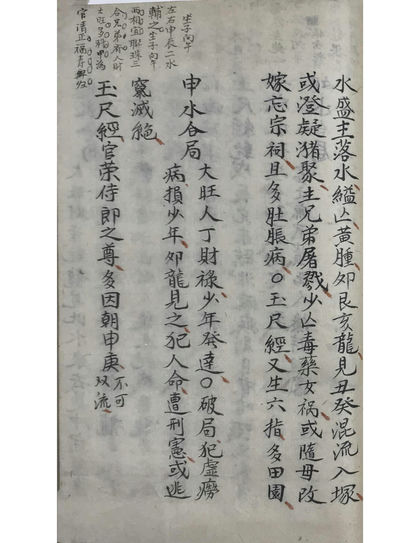 水盛主落水縊亾黃腫卯艮亥龍見丑癸混流入塚
或澄凝猪聚主兄弟屠戮少亾毒藥女禍或隨母改
嫁忘宗祠且多肚脹病○玉尺經又生六指多田園
申水合局
大旺人丁財祿少年發達○破局犯虛癆
病損少年卯龍見之犯人命遭刑憲或逃
竄滅絕
玉尺經官荣侍郎之尊多因朝申庚不可双流
坐子向午
左右申辰二水
輔之生子向午
兩相宜聯珠三
合兄弟齊人財
大旺多移甲為
官清正福壽興